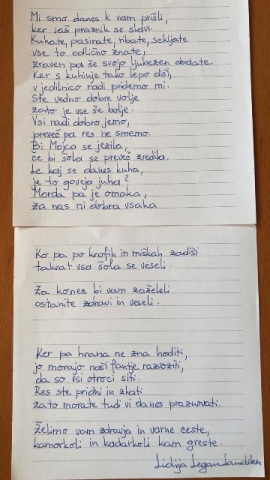 Mi smo danes k vam prišli,
ker vaš praznik se slavi.
Kuhate, pasirate, ribate, sekljate
vse to odlično znate,
zraven pa še svojo ljubezen dodate.
Ker s kuhinje tako lepo diši,
v jedilnico radi pridemo mi.
Ste vedno dobre volje
zato je vse še bolje.
Vsi radi dobro jemo,
preveč pa res ne smemo.
Bi Mojca se jezila,
če bi šola se preveč zredila.
Le kaj se danes kuha,
je to goveja juha?
Morda pa je omaka,
za nas ni dobra vsaka
Ko pa po krofih in miškah zadiši
takrat vsa šola se veseli.
Za konec bi vam zaželeli
ostanite zdravi in veseli.
Ker pa hrana ne zna hoditi,
jo morajo naši fantje razvoziti,
da so vsi otroci siti.
Res ste pridni in zlati
zato morate tudi vi danes praznovati.
Želimo vam zdravja in varne ceste,
kamorkoli in kadarkoli kam greste.
Lidija Legan